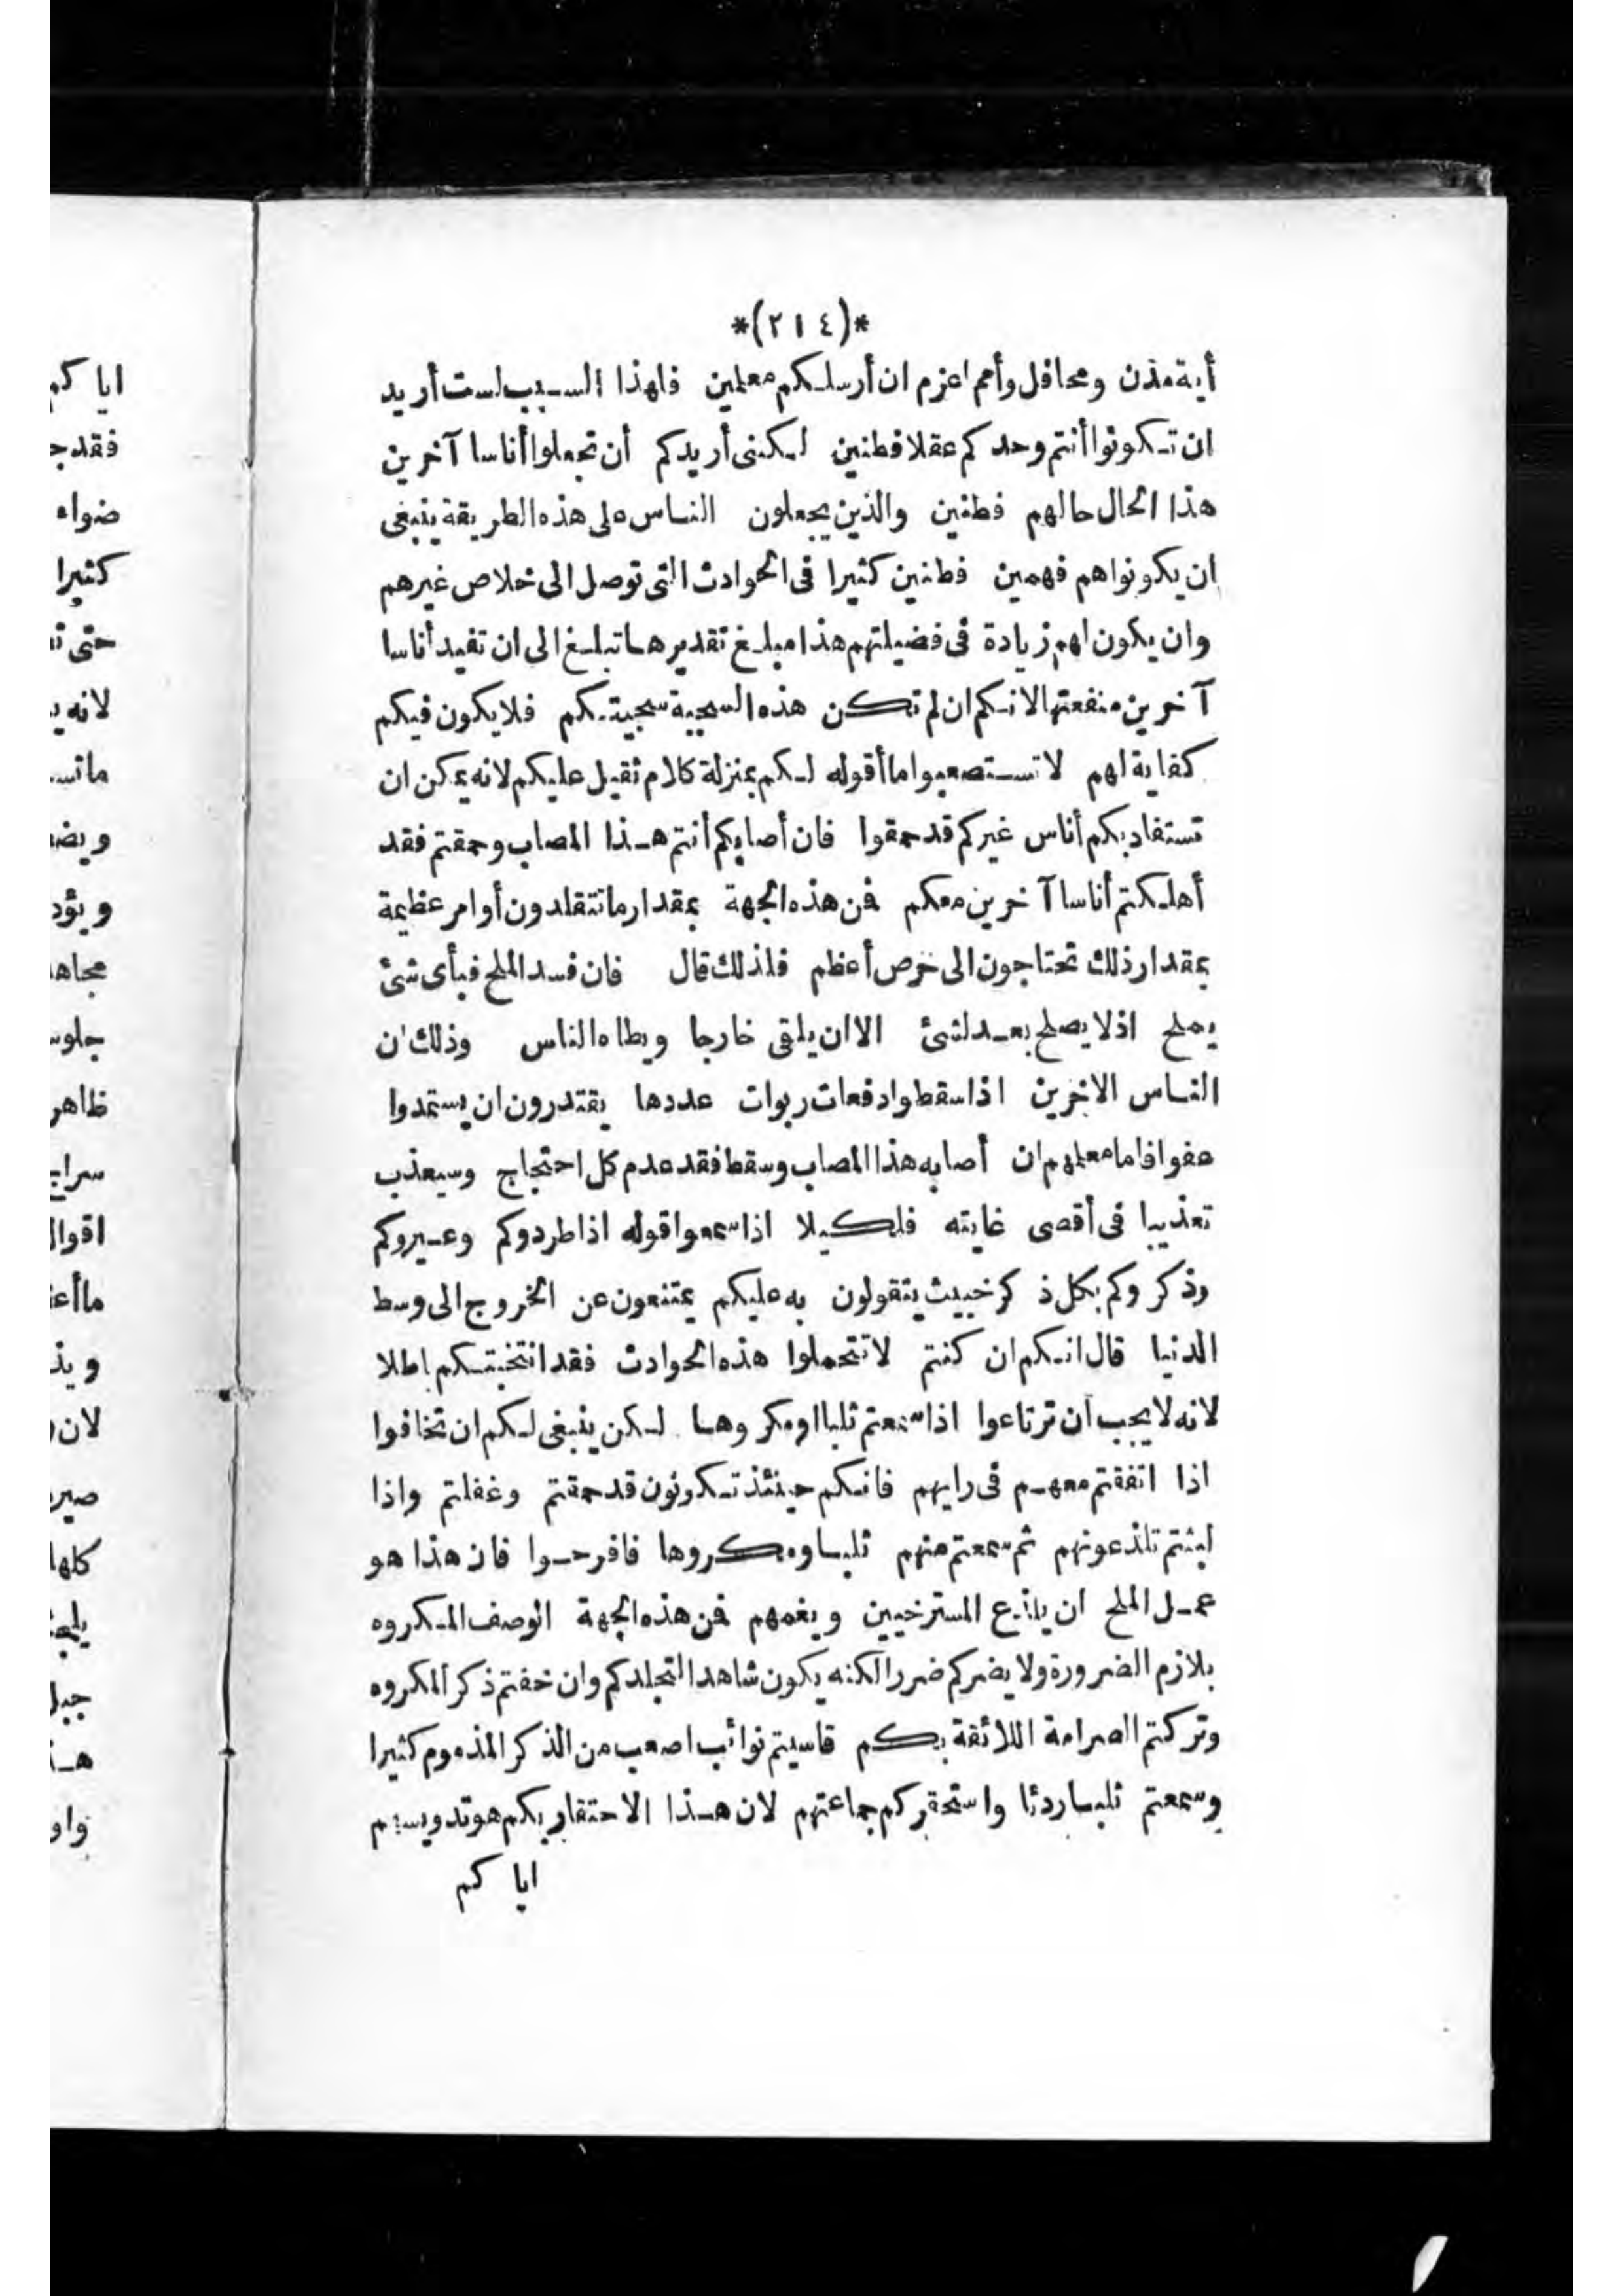 *(٢١٤)*
أية مدن ومحافل وأمم اعزم ان أرسلكم معلمين فلهذا السبب لست أريد
ان تكونوا أنتم وحدكم عقلا فطنين لكنى أريدكم أن تجعلوا أناسا آخرين
هذا الحال حالهم فطنين والذين يجعلون الناس على هذه الطريقة ينبغى
ان يكونواهم فهمين فطنين كثيرا فى الحوادث التى توصل الى خلاص غيرهم
وان يكون لهم زيادة فى فضيلتهم هذا مبلغ تقديرها تبلغ الى ان تفيد أناسا
آخرين منفعتها لانكم ان لم تكن هذه السجية سجيتكم فلا يكون فيكم
كفاية لهم لا تستصعبوا ما أقوله لكم بمنزلة كلام ثقيل عليكم لانه يمكن ان
تستفاد بكم أناس غيركم قد حمقوا فان أصابكم أنتم هذا المصاب وحمقتم فقد
أهلكتم أناسا آخرين معكم فمن هذه الجهة بمقدار ما تتقلدون أوامر عظيمة
بمقدار ذلك تحتاجون الى حرص أعظم فلذلك قال فان فسد الملح فبأى شئ
يملح اذ لا يصلح بعد لشئ الا ان يلقى خارجا ويطاه الناس وذلك ان
الناس الاخرين اذا سقطوا دفعات ربوات عددها يقتدرون ان يستمدوا
عفوا فاما معلمهم ان أصابه هذا المصاب وسقط فقد عدم كل احتجاج وسيعذب
تعذيبا فى أقصى غايته فلكيلا اذا سمعوا قوله اذا طردوكم وعيروكم
وذكروكم بكل ذكر خبيث يتقولون به عليكم يمتنعون عن الخروج الى وسط
الدنيا قال انكم ان كنتم لا تتحملوا هذه الحوادث فقد انتخبتكم باطلا
لانه لا يجب أن ترتاعوا اذا سمعتم ثلبا او مكروها لكن ينبغى لكم ان تخافوا
اذا اتفقتم معهم فى رايهم فانكم حينئذ تكونون قد حمقتم وغفلتم واذا
لبثتم تلذعونهم ثم سمعتم منهم ثلبا ومكروها فافرحوا فان هذا هو
عمل الملح ان يلذع المسترخيين ويغمهم فمن هذه الجهة الوصف المكروه
يلازم الضرورة ولا يضركم ضررا لكنه يكون شاهدا لتجلدكم وان خفتم ذكر المكروه
وتركتم الصرامة اللائقة بكم قاسيتم نوائب اصعب من الذكر المذموم كثيرا
وسمعتم ثلبا ردئا واستحقركم جماعتهم لان هذا الاحتقار بكم هو تدويسهم
ايا كم
ايا كم
ضواه
كثيرا
ظاهر